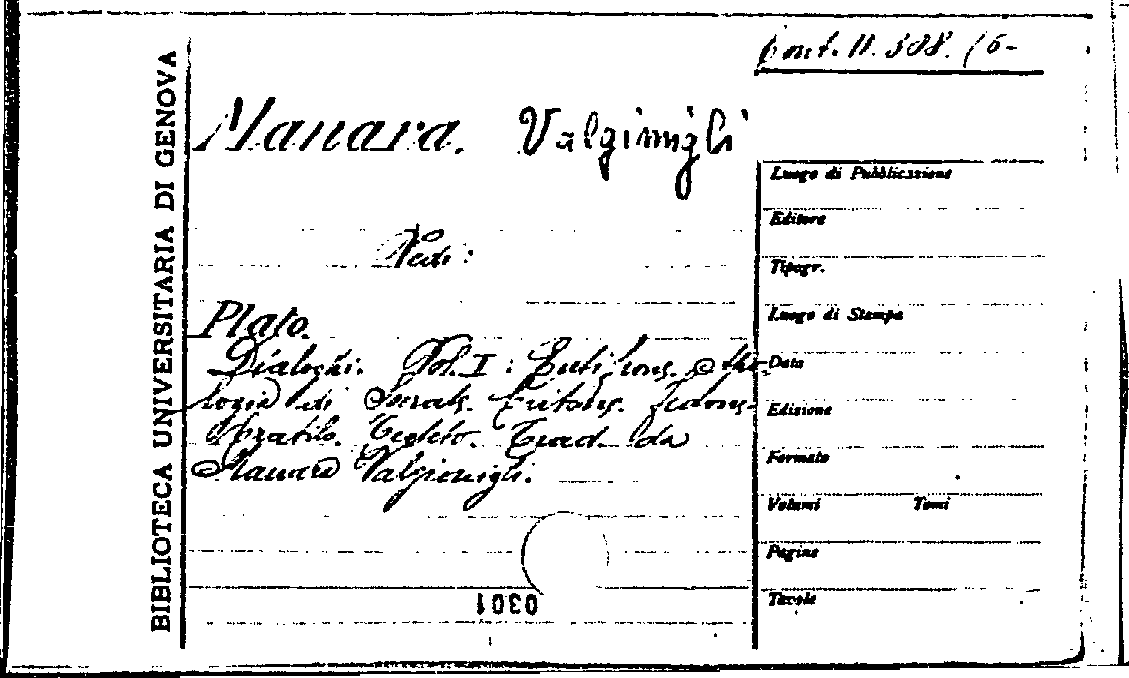 Cont. II. 508. 16-
Manara. Valgimigli
Vedi:
Plato.
Dialoghi. Vol. I: Eutifrone. Apo-
logia di Socrate. Critone. Fedone.
Cratilo. Teeteto. Trad. da
Manara Valgimigli.
BIBLIOTECA UNIVERSITARIA DI GENOVA
Luogo di Pubblicazione
Editore
Tipogr.
Luogo di Stampa
Data
Edizione
Formato
Volumi Tomi
Pagine
Tavole
0301